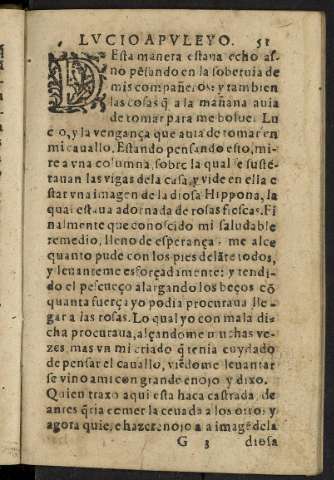 LVCIO APVLEYO. 51
DEsta manera estaua echo as-
no pẽsando en la soberuia de
mis compañeros: y tambien
las cosas q̃ a la mañana auia
de tomar para me boluer Lu
cio, y la vengança que auia de tomar en
mi cauallo. Estando pensando esto, mi-
re a vna columna, sobre la qual e sustẽ-
tauan las vigas dela casa, y vide en ella e
star vna imagen de la diosa Hippona, la
qual estaua adornada de rosas frescas. Fi
nalmente que conoscido mi saludable
remedio, lleno de esperança, me alce
quanto pude con los pies delãte todos,
y leuanteme esforçadamente: y tendi-
do el pescueço alargando los beços cõ
quanta fuerça yo podia procuraua lle-
gar a las rosas. Lo qual yo con mala di-
cha procuraua, alçandome muchas ve-
zes mas vn mi criado q̃ tenia cuydado
de pensar el cauallo, viẽdome leuantar
se vino ami con grande enojo y dixo.
Quien traxo aqui esta haca castrada, de
antes q̃ria comer la ceuada a los otros y
agora quiere hazer enojo a la imagẽ de la
G 3 diosa